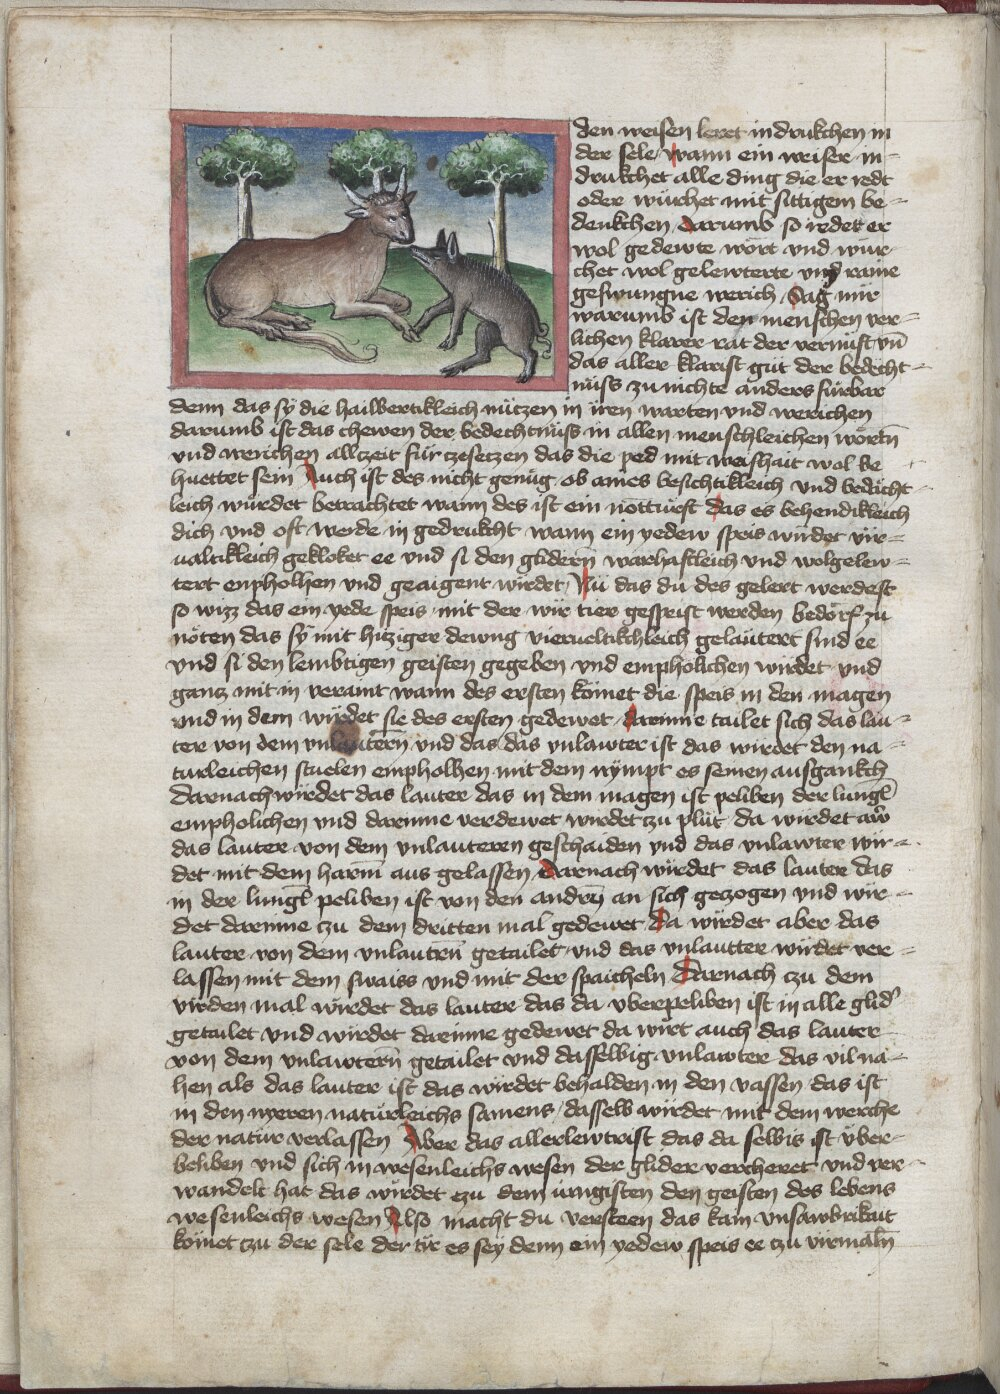 den weisen leret in drukchen in
der sele, wann ein weiser in=
drukchet alle ding die er redt
oder würchet mit sittigem be=
denkchen, darumb so redet er
wol gedewte wort vnd wür
chet wol gelewterte vnd raine
geswungne werich, Sag mir
warumb ist den menschen ver=
lichen klarer rat der vernüft vn̄
das aller klarist güt der bedecht=
nüss zu nichte anders fürbar
denn das sy die hailbertikleich nützen in iren warten vnd werichen
darumb ist das chewen der bedechtnüss in allen menschleichen wortn̄
vnd werichen allczeit für czesetzen das die ped mit weishait wol be
huettet sein Auch ist des nicht genüg ob ains besichtikleich vnd bedächt=
leich würdet betrachtet wann des ist ein notturft das es behendikleich
dich vnd oft werde in gedrukcht wann ein yedew speis wirdet vir=
ualtikleich gekloket ee vnd si den glidern̄ warhaftleich vnd wolgelew=
tert enpholhen vnd geaigent wirdet, Nu das du des gelert werdest
so wizz das ein yede speis mit der wir tier gespeist werden bedorf zu
nöten das sy mit hitziger dewng vierueltikchleich geläutert sind ee
vnd si den lembtigen geisten gegeben vnd empholichen wirdet vnd
gancz mit in veraint wann des ersten kömet die speis in den magen
vnd in dem würdet sie des ersten gedewet darinne tailet sich das lau=
ter von dem vnlautern̄ vnd das das vnlawter ist das wirdet den na=
turleichen stuelen empholhen mit dem nympt es seinen ausgankch
Darnach würdet das lauter das in dem magen ist peliben der lungl̄
empholichen vnd darinne verdewet wirdet zu plüt da würdet aw
das lauter von dem vnlauteren geschaiden vnd das vnlawter wir=
det mit dem harm̄ aus gelassen Darnach würdet das lauter das
in der lungl̄ peliben ist von den andrn̄ an sich geczogen vnd wir=
det darinne czu dem dritten mal gedewet Da würdet aber das
lauter von dem vnlautrn̄ getailet vnd das vnlautter würdet ver=
lassen mit dem swaiss vnd mit der spaicheln Darnach czu dem
virden mal würdet das lauter das da vberpeliben ist in alle glid
getailet vnd wirdet darinne gedewet da wirt auch das lauter
von dem vnlawtern̄ getailet vnd dasselbig vnlawter das vil na=
hen als das lauter ist das würdet behalden in den vassen das ist
in den nyeren naturleichs samens, dasselb würdet mit dem werche
der natur verlassen Aber das allerlewtrist das da selbis ist vber=
beliben vnd sich in wesenleichs wesen der glider vercheret vnd ver
wandelt hat das würdet czu dem iungisten den geisten des lebens
wesenleichs wesen Also macht du versteen das kain vnsawbrikait
kömet czu der sele der tir es sey denn ein yedew speis ee czu virmaln̄